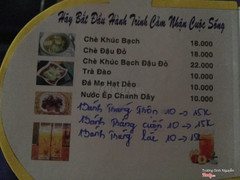 Hãy Bắt Đầu Hành Trình Cảm Nhận Cuộc Sống
Chè Khúc Bạch 18.000
Chè Đậu Đỏ 18.000
Chè Khúc Bạch Đậu Đỏ 22.000
Trà Đào 10.000
Đá Me Hạt Dẻo 10.000
Nước Ép Chanh Dây 10.000
Bánh Tráng Trộn 10 → 15k
Bánh Tráng cuốn 10 → 15k
Bánh Tráng lắc 10 →